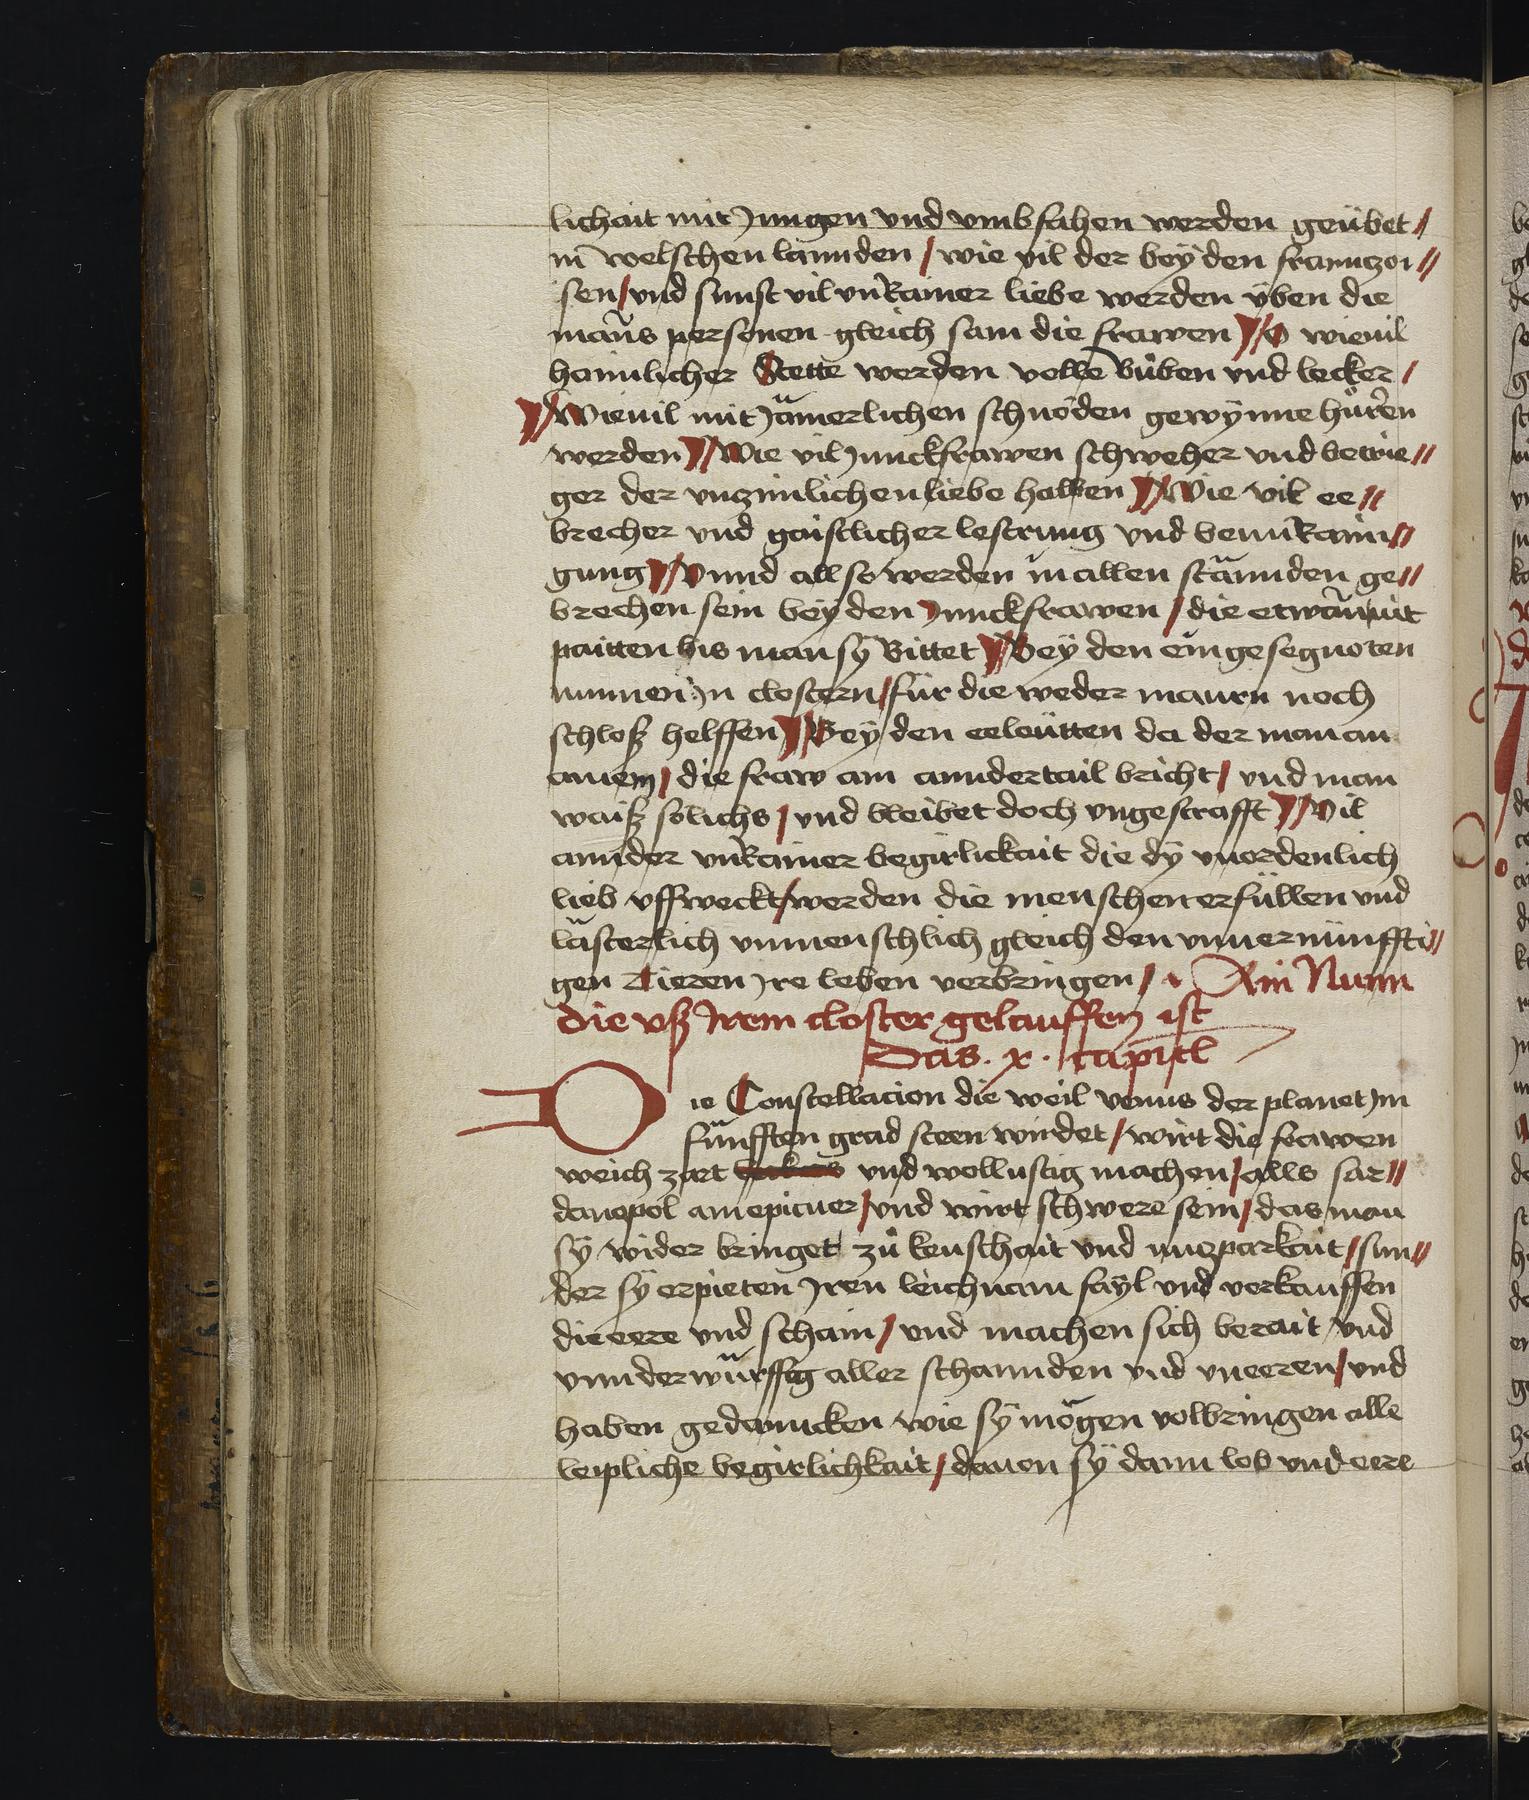 lichait mit Jungen vnd vmbfahen werden geübet //
in welschen lannden / wie vil der bey den franntzoi //
sen / vnd sunst vil vnRainer liebe werden yben die
mans personen gleich sam die frawen // O wieuil
haimlicher Stette werden volle Buͦben vnd lecker /
// Wieuil mit Jämerlichen schnöden gewynne huͦren
werden // Wie vil Junckfrawen schweher vnd betrie //
ger der vnzimlichen liebe halben // Wie vil ee //
brecher vnd gaistlicher lestrung vnd beunRaini //
gung // Vnnd allso werden in allen stännden ge //
brechen sein bey den Junckfrawen / die etwann nit
paitten bis man sy Bittet // Bey den eingesegnoten
nunnen Jn clostern / für die weder maurn noch
schloß helffen // Bey den eeleütten da der man an
ainem / die fraw am anndertail bricht / vnd man
waiß solichs / vnd bleibet doch vngestrafft // Vil
annder vnRainer begirlickait die dy vnordenlich
lieb vffweckt / werden die menschen erfüllen vnd
lästerlich vnmenschlich gleich den vnuernünffti //
gen Tieren Jre leben verbringen / Ain Nunn
die vß Jrem closter gelauffen ist
Das . x . capitl
Die Constellacion die weil venus der planet Jm
fünfften grad steen wirdet / wirt die frawen
weich zart vnd wollustig machen / alls sar //
danopol ain epicuer / vnd wirt schwere sein / das man
sy wider bringet zuͦ keuschait vnd nuczparkait / sun //
der sy erpieten Jren leichnam fayl vnd verkauffen
die eere vnd scham / vnd machen sich berait vnd
vnnderwürffig aller schannden vnd vneeren / vnd
haben gedanncken wie sy mögen volbringen alle
leipliche begirlichkait / dauon sy dann lob vnd eere